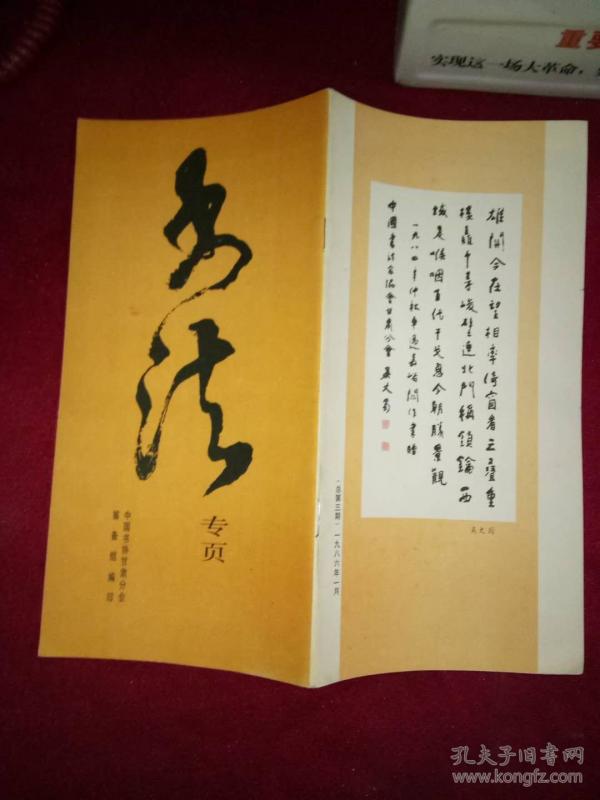 书法
专页
中国书协甘肃分会
筹备组编印
(总第三期)一九八六年一月
雄关今在望相率倚窗看三叠重
楼耸千寻峻壁连北门称锁钥西
域是喉咽百代干戈息今朝胜景观
一九八四年仲秋车过嘉峪关作书赠
中国书法家协会甘肃分会 吴丈蜀
吴丈蜀
重要
实现这一场大革命，
孔夫子旧书网
www.kongfz.com